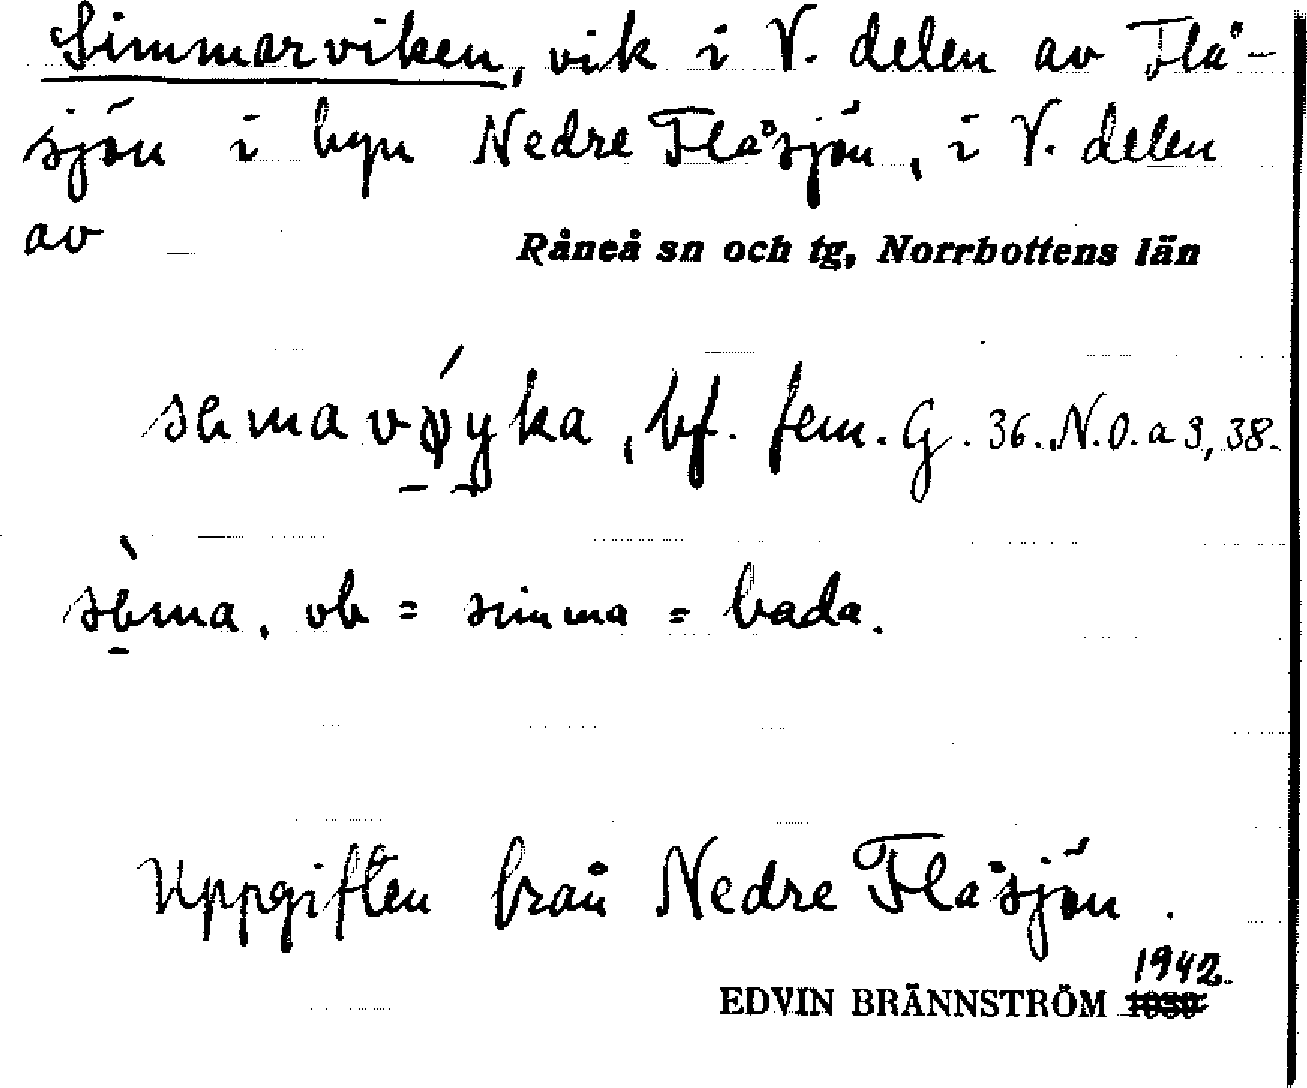 Simmarviken, vik i V. delen av Flå-
sjön i byn Nedre Flåsjön, i V. delen
av
Råneå sn och tg, Norrbottens län
bf. fem. G. 36. N.O. a 3, 38.
vb = simma = bada.
Uppgiften från Nedre Flåsjön.
1942.
EDVIN BRÄNNSTRÖM 1939